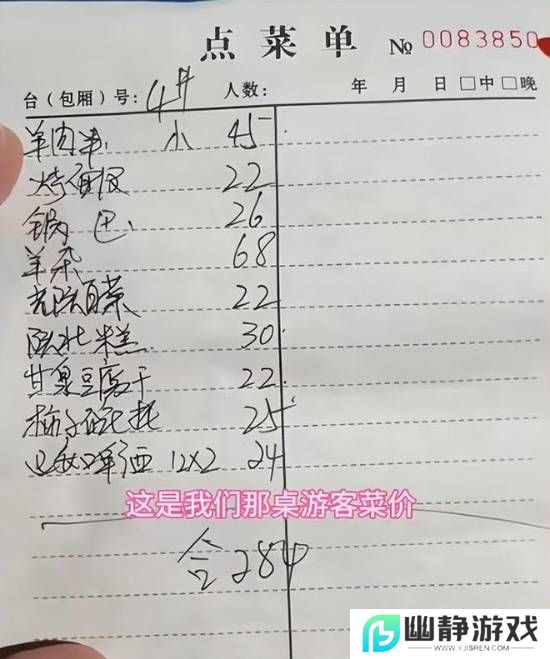 点菜单 № 0083850
台（包厢）号：4# 人数： 年 月 日 □中□晚
羊肉串 小 45
烤面 22
锅巴 26
羊杂 68
白菜 22
陕北糕 30
甘泉豆腐干 22
柿子 25
啤酒 12X2 24
这是我们那桌游客菜价
合284
幽静游戏
WWW.YJISREN.COM